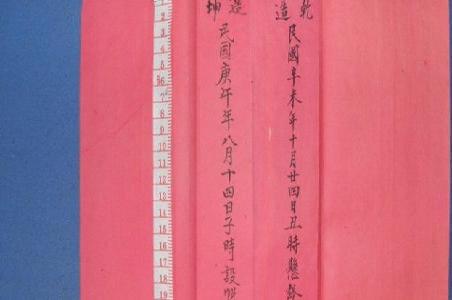 乾造 民國辛未年十月廿四日丑時懸
坤造 民國庚午年八月十四日子時設帨
2
3
4
5
6
7
8
9
10
11
12
13
14
15
16
17
18
19